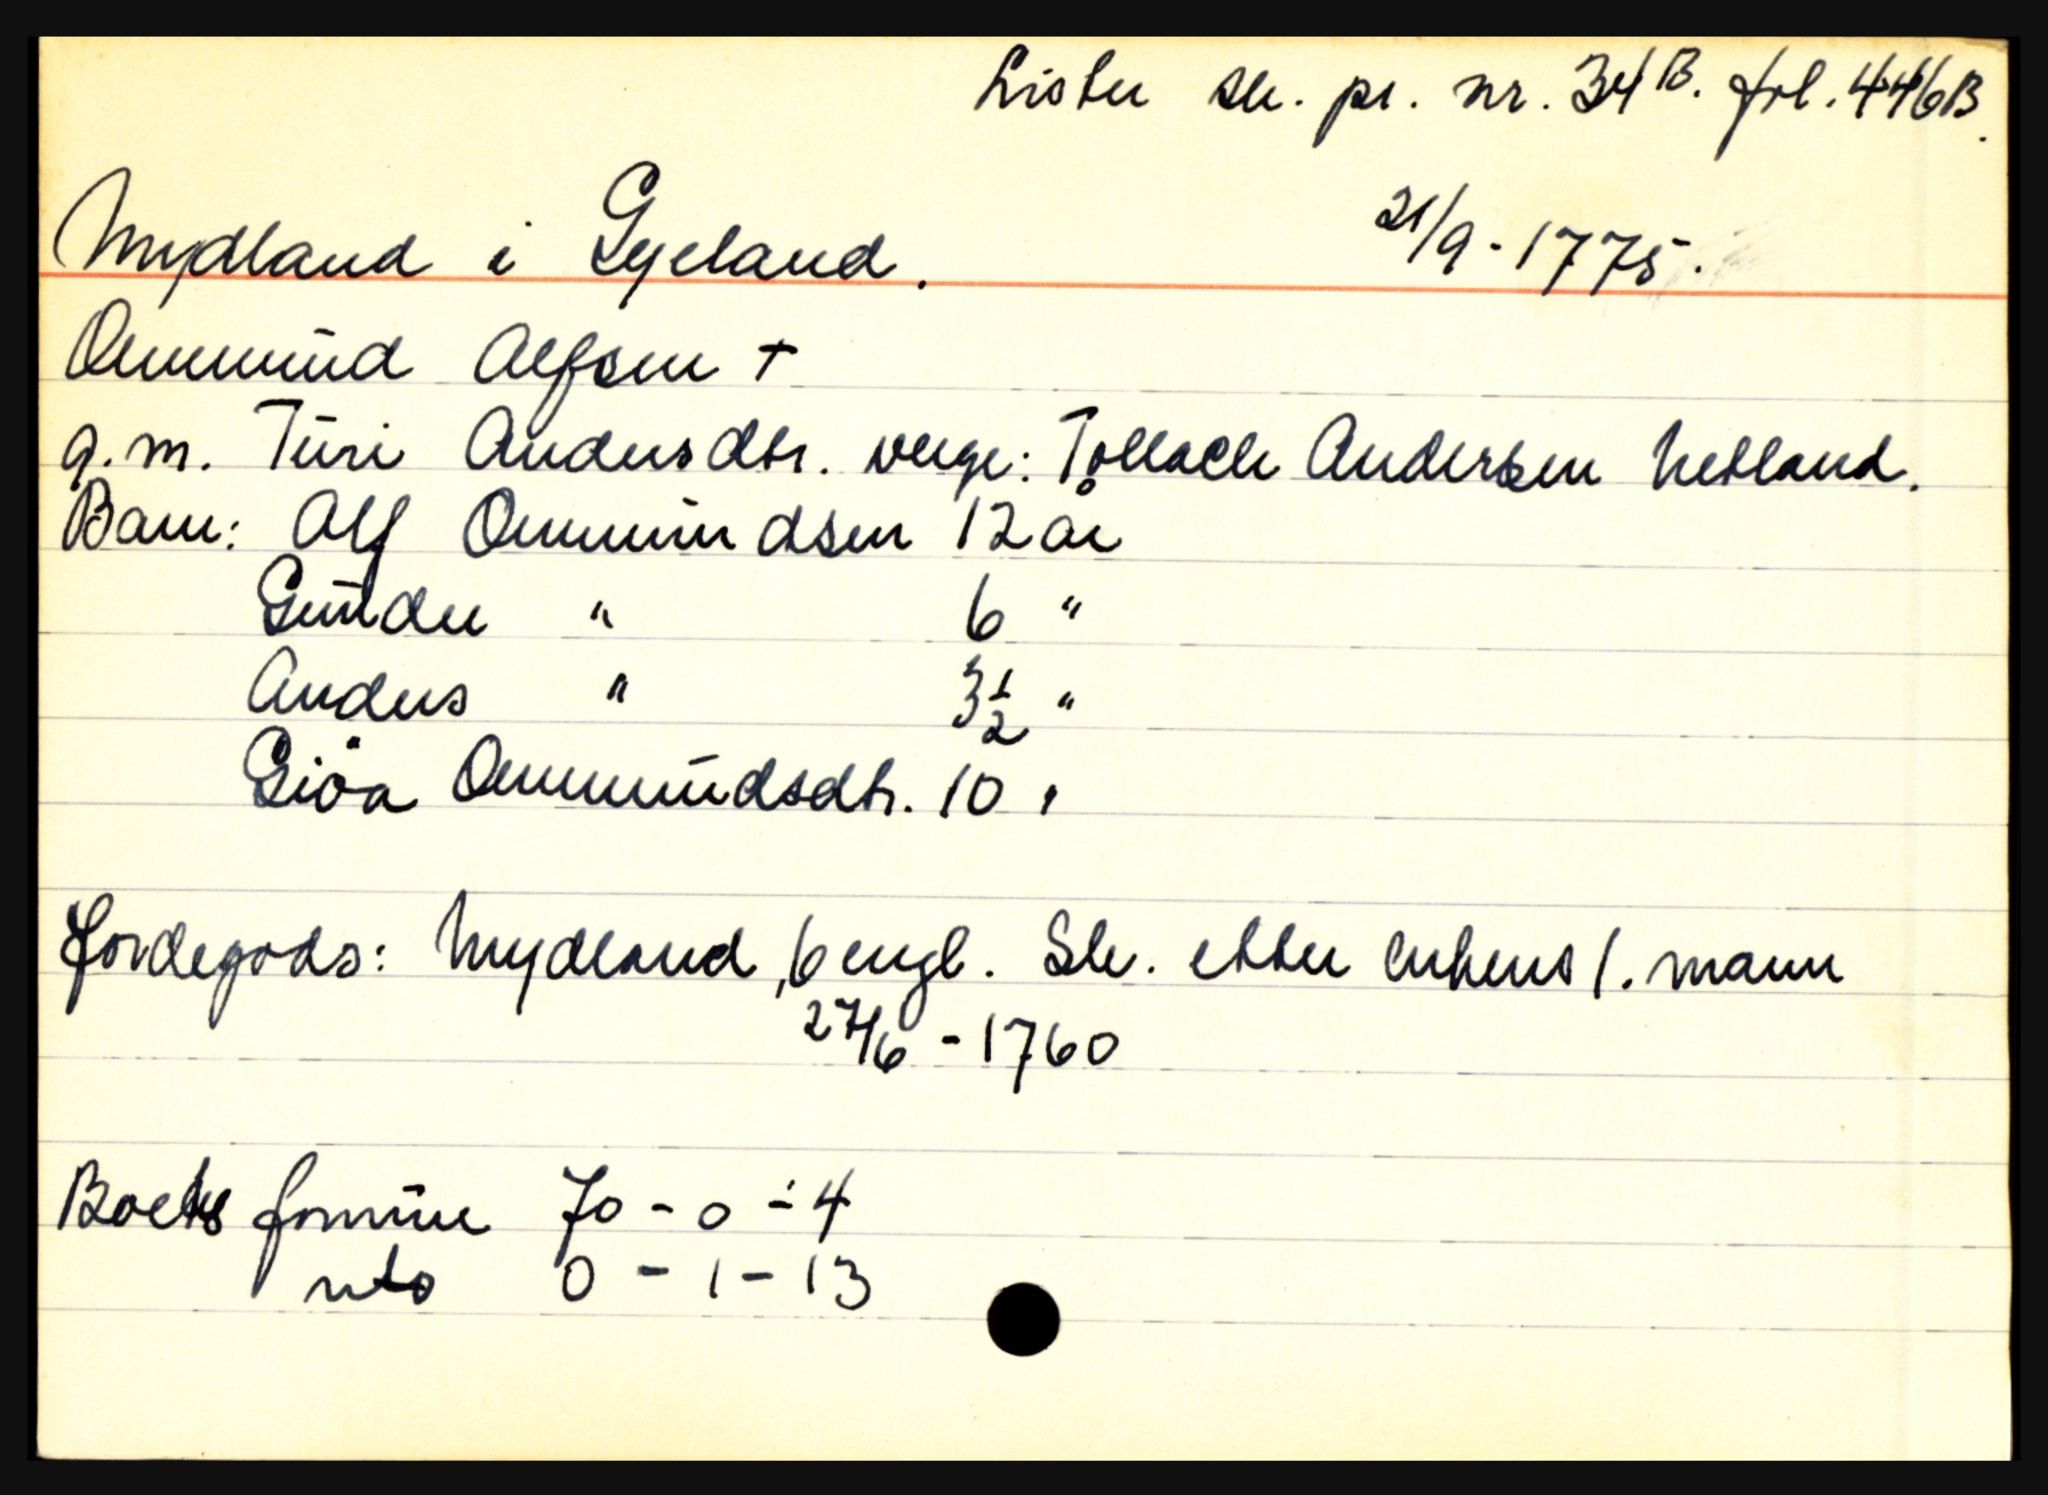 Lister sk. pr. nr. 34 B. fol. 446B.
Mydland i Gyeland. 21/9-1775.
Ommund Alfsen +
g.m. Turi Andersdtr. verge: Tollach Andersen Netland.
Barn: Alf Ommundsen 12 år
Gunder " 6 "
Anders " 3 1/2 "
Giöa Ommundsdtr. 10 "
Jordegods: Mydland, 6 engl. Sk. etter enkens 1. mann
27/6 - 1760
Boets formue 70 - 0 - 4
nto 0 - 1 - 13